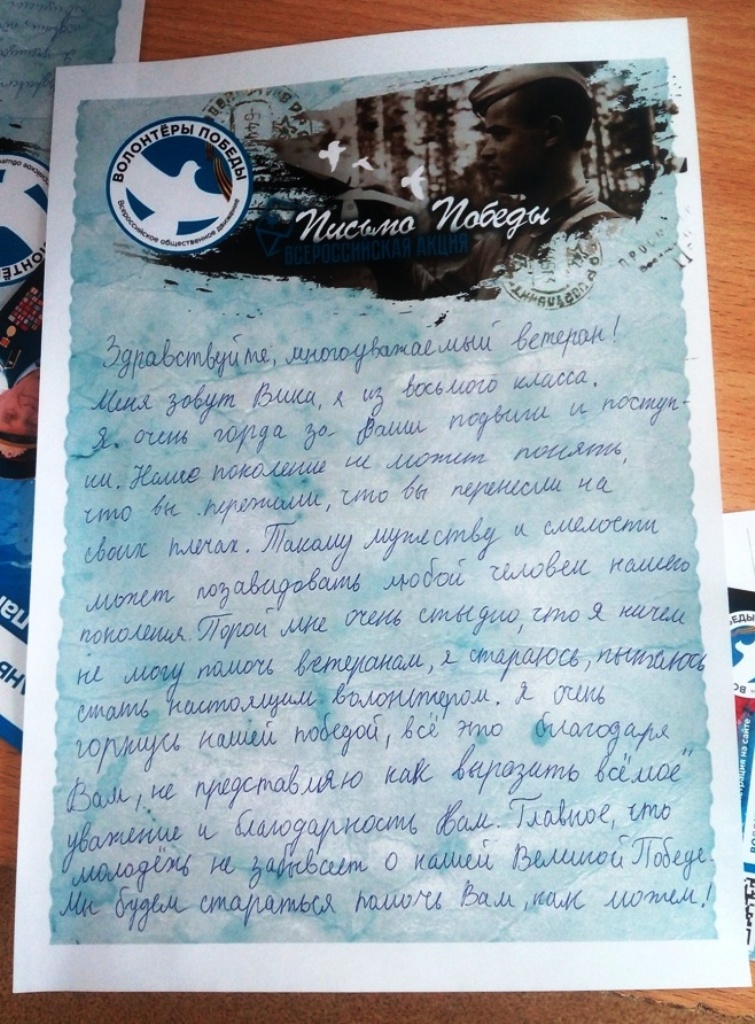 ВОЛОНТЁРЫ ПОБЕДЫ
Всероссийское общественное движение
Письмо Победы
ВСЕРОССИЙСКАЯ АКЦИЯ
Здравствуйте, многоуважаемый ветеран!
Меня зовут Вика, я из восьмого класса.
Я очень горда за Ваши подвиги и поступ-
ки. Наше поколение не может понять,
что вы пережили, что вы перенесли на
своих плечах. Такому мужеству и смелости
может позавидовать любой человек нашего
поколения. Порой мне очень стыдно, что я ничем
не могу помочь ветеранам, я стараюсь, пытаюсь
стать настоящим волонтером. Я очень
горжусь нашей победой, всё это благодаря
Вам, не представляю как выразить всё "моё"
уважение и благодарность Вам. Главное, что
молодёжь не забывает о нашей Великой Победе.
Мы будем стараться помочь Вам, как можем!